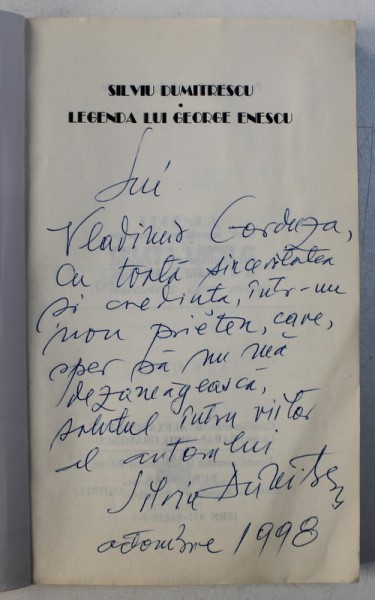 SILVIU DUMITRESCU
•
LEGENDA LUI GEORGE ENESCU
Lui
Vladimir Corduza,
cu toată sinceritatea
și credința, într-un
nou prieten, care,
sper să nu mă
dezamăgească,
salutul întru viitor
al autorului
Silviu Dumitrescu
octombrie 1998